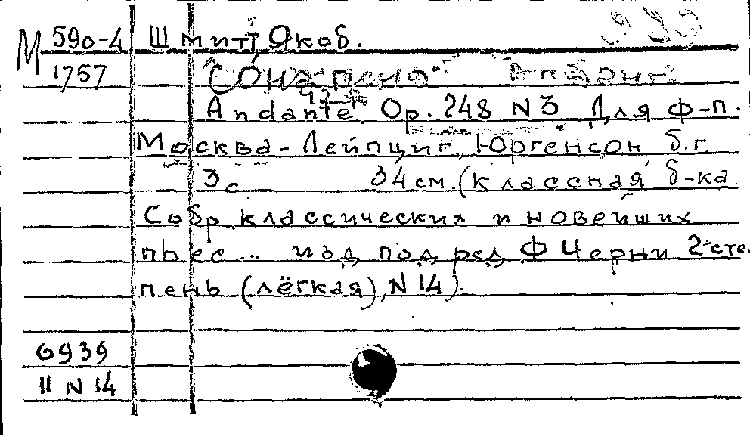 М 590-4 Шмит, Якоб.
1757 "Сонатина"
Andante Op. 248 N3 Для ф-п.
Москва-Лейпциг, Юргенсон б.г.
3с 34 см. (классная б-ка
Собр. классических и новейших
пьес .. изд. под ред. Ф Черни 2 сте-
пень (лёгкая), N 14).
6939
II N 14